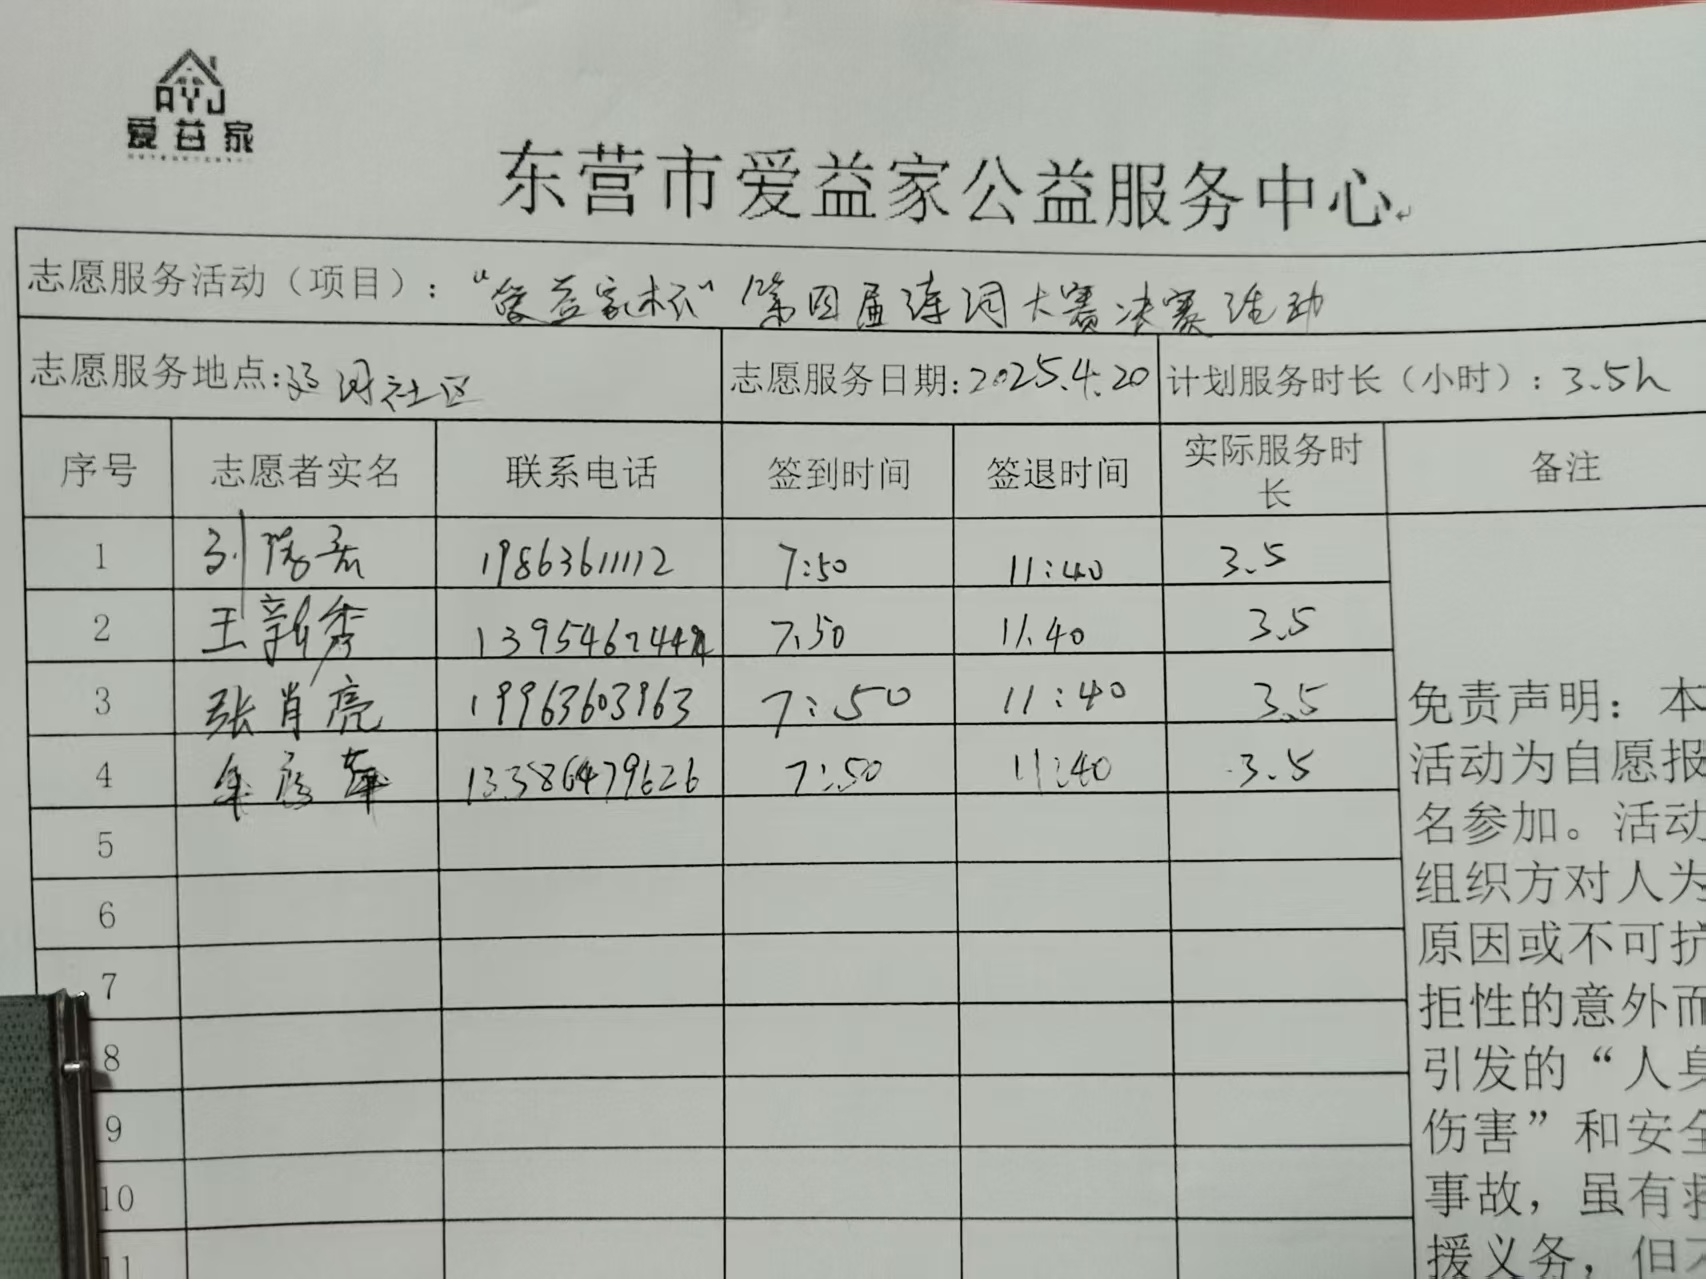 AYJ
爱益家
东营市爱益家公益服务中心
志愿服务活动（项目）：“爱益家杯”第四届诗词大赛决赛活动
志愿服务地点:河社区 志愿服务日期:2025.4.20 计划服务时长（小时）：3.5h
序号 志愿者实名 联系电话 签到时间 签退时间 实际服务时长 备注
1 刘 19863611112 7:50 11:40 3.5
2 王新秀 7:50 11:40 3.5
3 张肖亮 19963603963 7:50 11:40 3.5
4 13386479626 7:50 11:40 3.5
5
6
7
8
9
10
11
免责声明：本
活动为自愿报
名参加。活动
组织方对人为
原因或不可抗
拒性的意外而
引发的“人身
伤害”和安全
事故，虽有救
援义务，但不